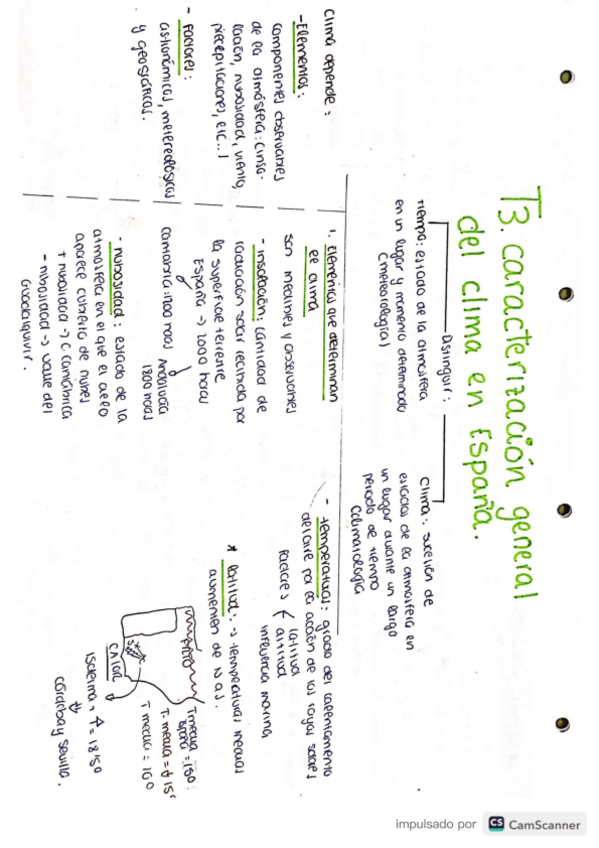 T3. caracterización general
del clima en España.
Distinguir:
Tiempo: estado de la atmósfera
en un lugar y momento determinado
(meteorología)
Clima: sucesión de
estados de la atmósfera en
un lugar durante un largo
periodo de tiempo
Colimatología
Clima depende:
- Elementos:
componentes observables
de la atmósfera: (inso-
lación, nubosidad, viento,
precipitaciones, etc...)
- Factores:
astronómicos, metereológicos
y geográficos.
1. Elementos que determinan
el clima
son medibles y observables
- insolación: cantidad de
radiación solar recibida por
la superficie terrestre.
España → 1000 horas
Cantabria: 1700 horas
Andalucía
1800 horas
- nubosidad: estado de la
atmósfera en el que el cielo
aparece cubierto de nubes
+ nubosidad → C Cantábrica
- nubosidad → valle del
Guadalquivir.
- temperatura: grado del calentamiento
del aire por la acción de los rayos solares
Factores
latitud
altitud
influencia marina
* latitud: → temperaturas medias
aumentan de N a S.
FRÍO
CALOR
T media
España = 150
T. media = + 15
T media = 160
isoterma + 4 = 18'50
Córdoba y Sevilla.
impulsado por CS CamScanner